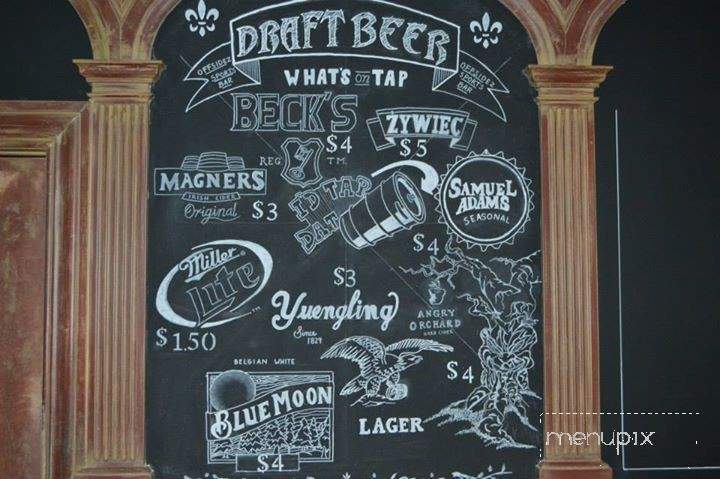 DRAFT BEER
OFFSIDEZ SPORTS BAR
OFFSIDEZ SPORTS BAR
WHAT'S on TAP
BECK'S
$4
REG
T.M.
ŻYWIEC
$5
MAGNERS
IRISH CIDER
Original
$3
I'D TAP
DAT
SAMUEL
ADAMS
SEASONAL
$4
Miller
Lite
$1.50
$3
Yuengling
Since
1829
LAGER
ANGRY
ORCHARD
HARD CIDER
$4
BELGIAN WHITE
BLUE MOON
$4
menupix